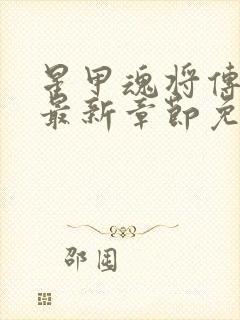 星甲魂将傳
最新章節免
邵围